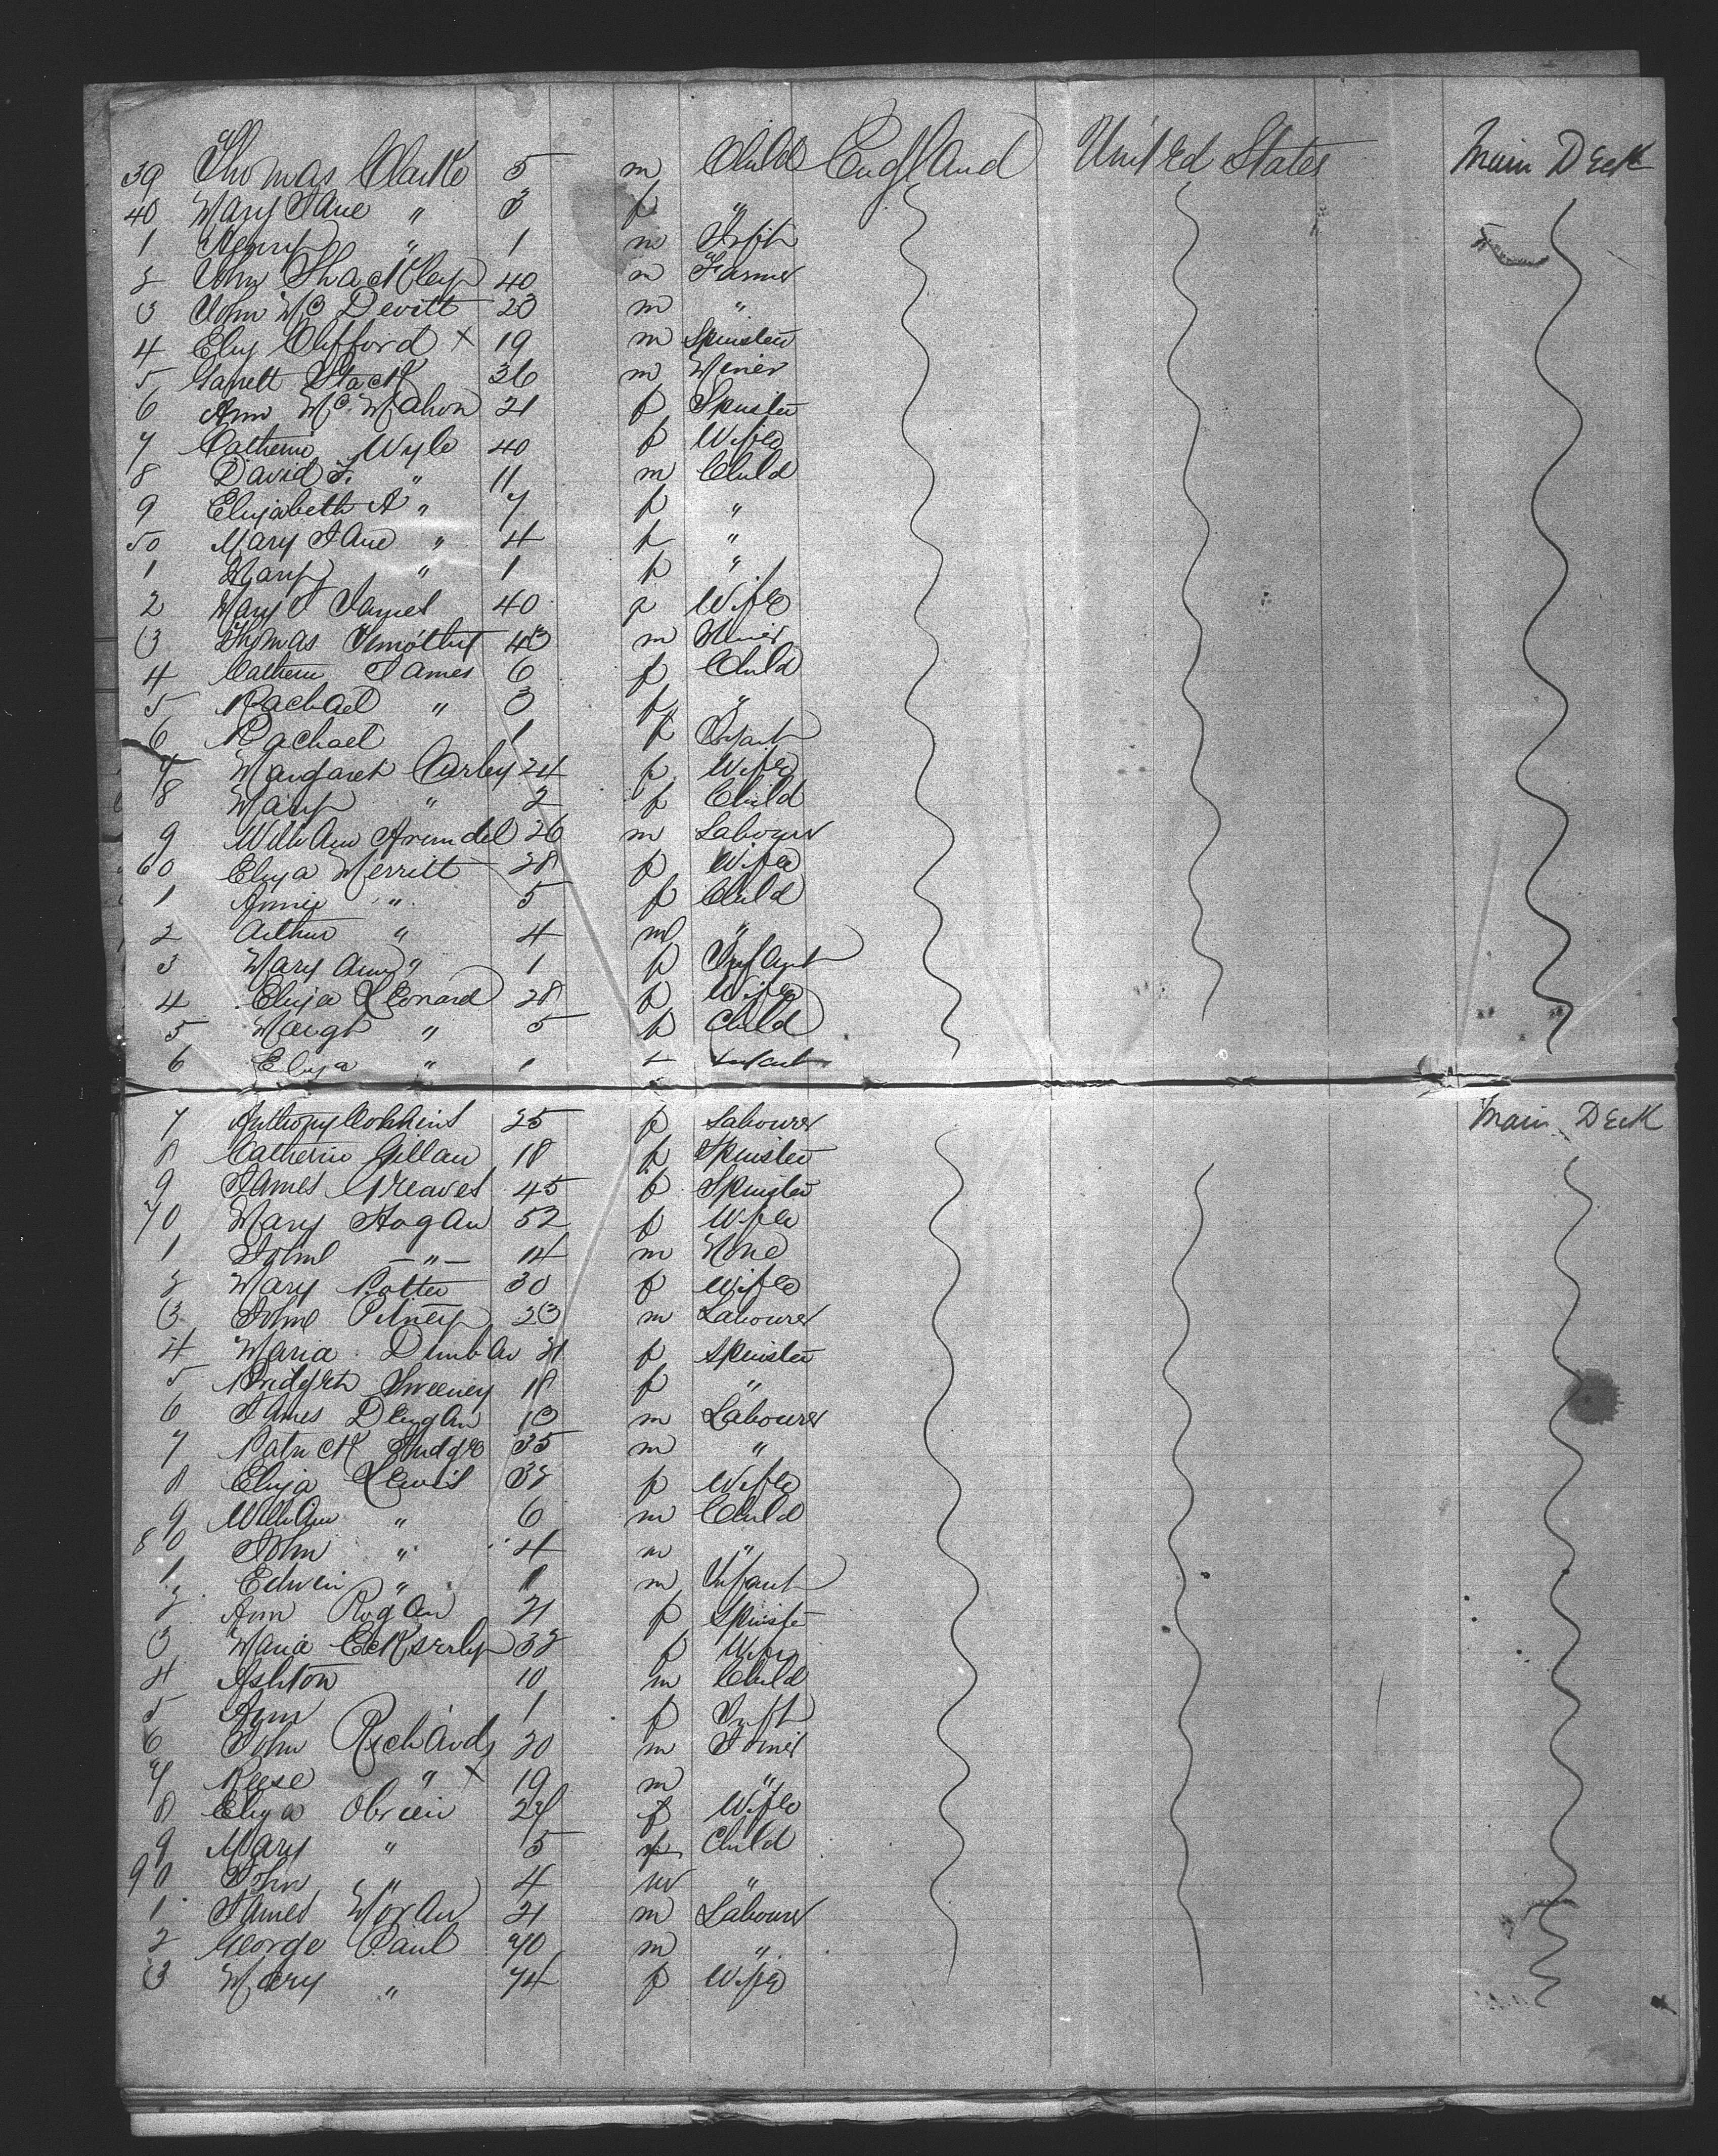 39 Thomas Clarke 5 m Child England United States Main Deck
40 Mary Jane " 3 f "
1 Henry " 1 m Infth
2 John Shackley 40 m Farmer
3 John Mc Devitt 23 m "
4 Eliz Clifford x 19 m Spinster
5 Garrett Stack 36 m Miner
6 Ann Mc Mahon 21 f Spinster
7 Catherin Wyle 40 f Wife
8 David F. " 11 m Child
9 Elizabeth A " 7 f "
50 Mary Jane " 4 f "
1 Mary " 1 f "
2 Mary James 40 f Wife
3 Thomas Timothy 43 m Miner
4 Catherin James 6 f Child
5 Rachael " 3 f "
6 Rachael 1 f Infant
7 Margaret Curley 24 f Wife
8 Mary " 2 f Child
9 William Arundel 26 m Labourer
60 Eliza Merritt 28 f Wife
1 Annie " 5 f Child
2 Arthur " 4 m "
3 Mary Ann " 1 f Infant
4 Eliza Leonard 28 f Wife
5 Margt " 5 f Child
6 Eliza " 1 f Infant
7 Anthony 25 f Labourer Main Deck
8 Catherin Gillan 18 f Spinster
9 James Greaves 45 f Spinster
70 Mary Hogan 52 f Wife
1 John — " — 14 m None
2 Mary Potter 30 f Wife
3 John 23 m Labourer
4 Maria Dunbar 21 f Spinster
5 Bridget Sweeney 18 f "
6 James 13 m Labourer
7 Patrick Judge 35 m "
8 Eliza Lewis 32 f Wife
9 William " 6 m Child
80 John " 4 m "
1 Edwin " 1 m Infant
2 Ann Rogan 21 f Spinste
3 Maria Eckserly 32 f Wife
4 Ashton 10 m Child
5 Ann 1 f Infth
6 John Richards 20 m
7 Reese " x 19 m "
8 Eliza Obrien 24 f Wife
9 Mary " 5 f Child
90 John " 4 m "
1 James Moran 21 m Labourer
2 George Paul 70 m "
3 Mary " 74 f Wife